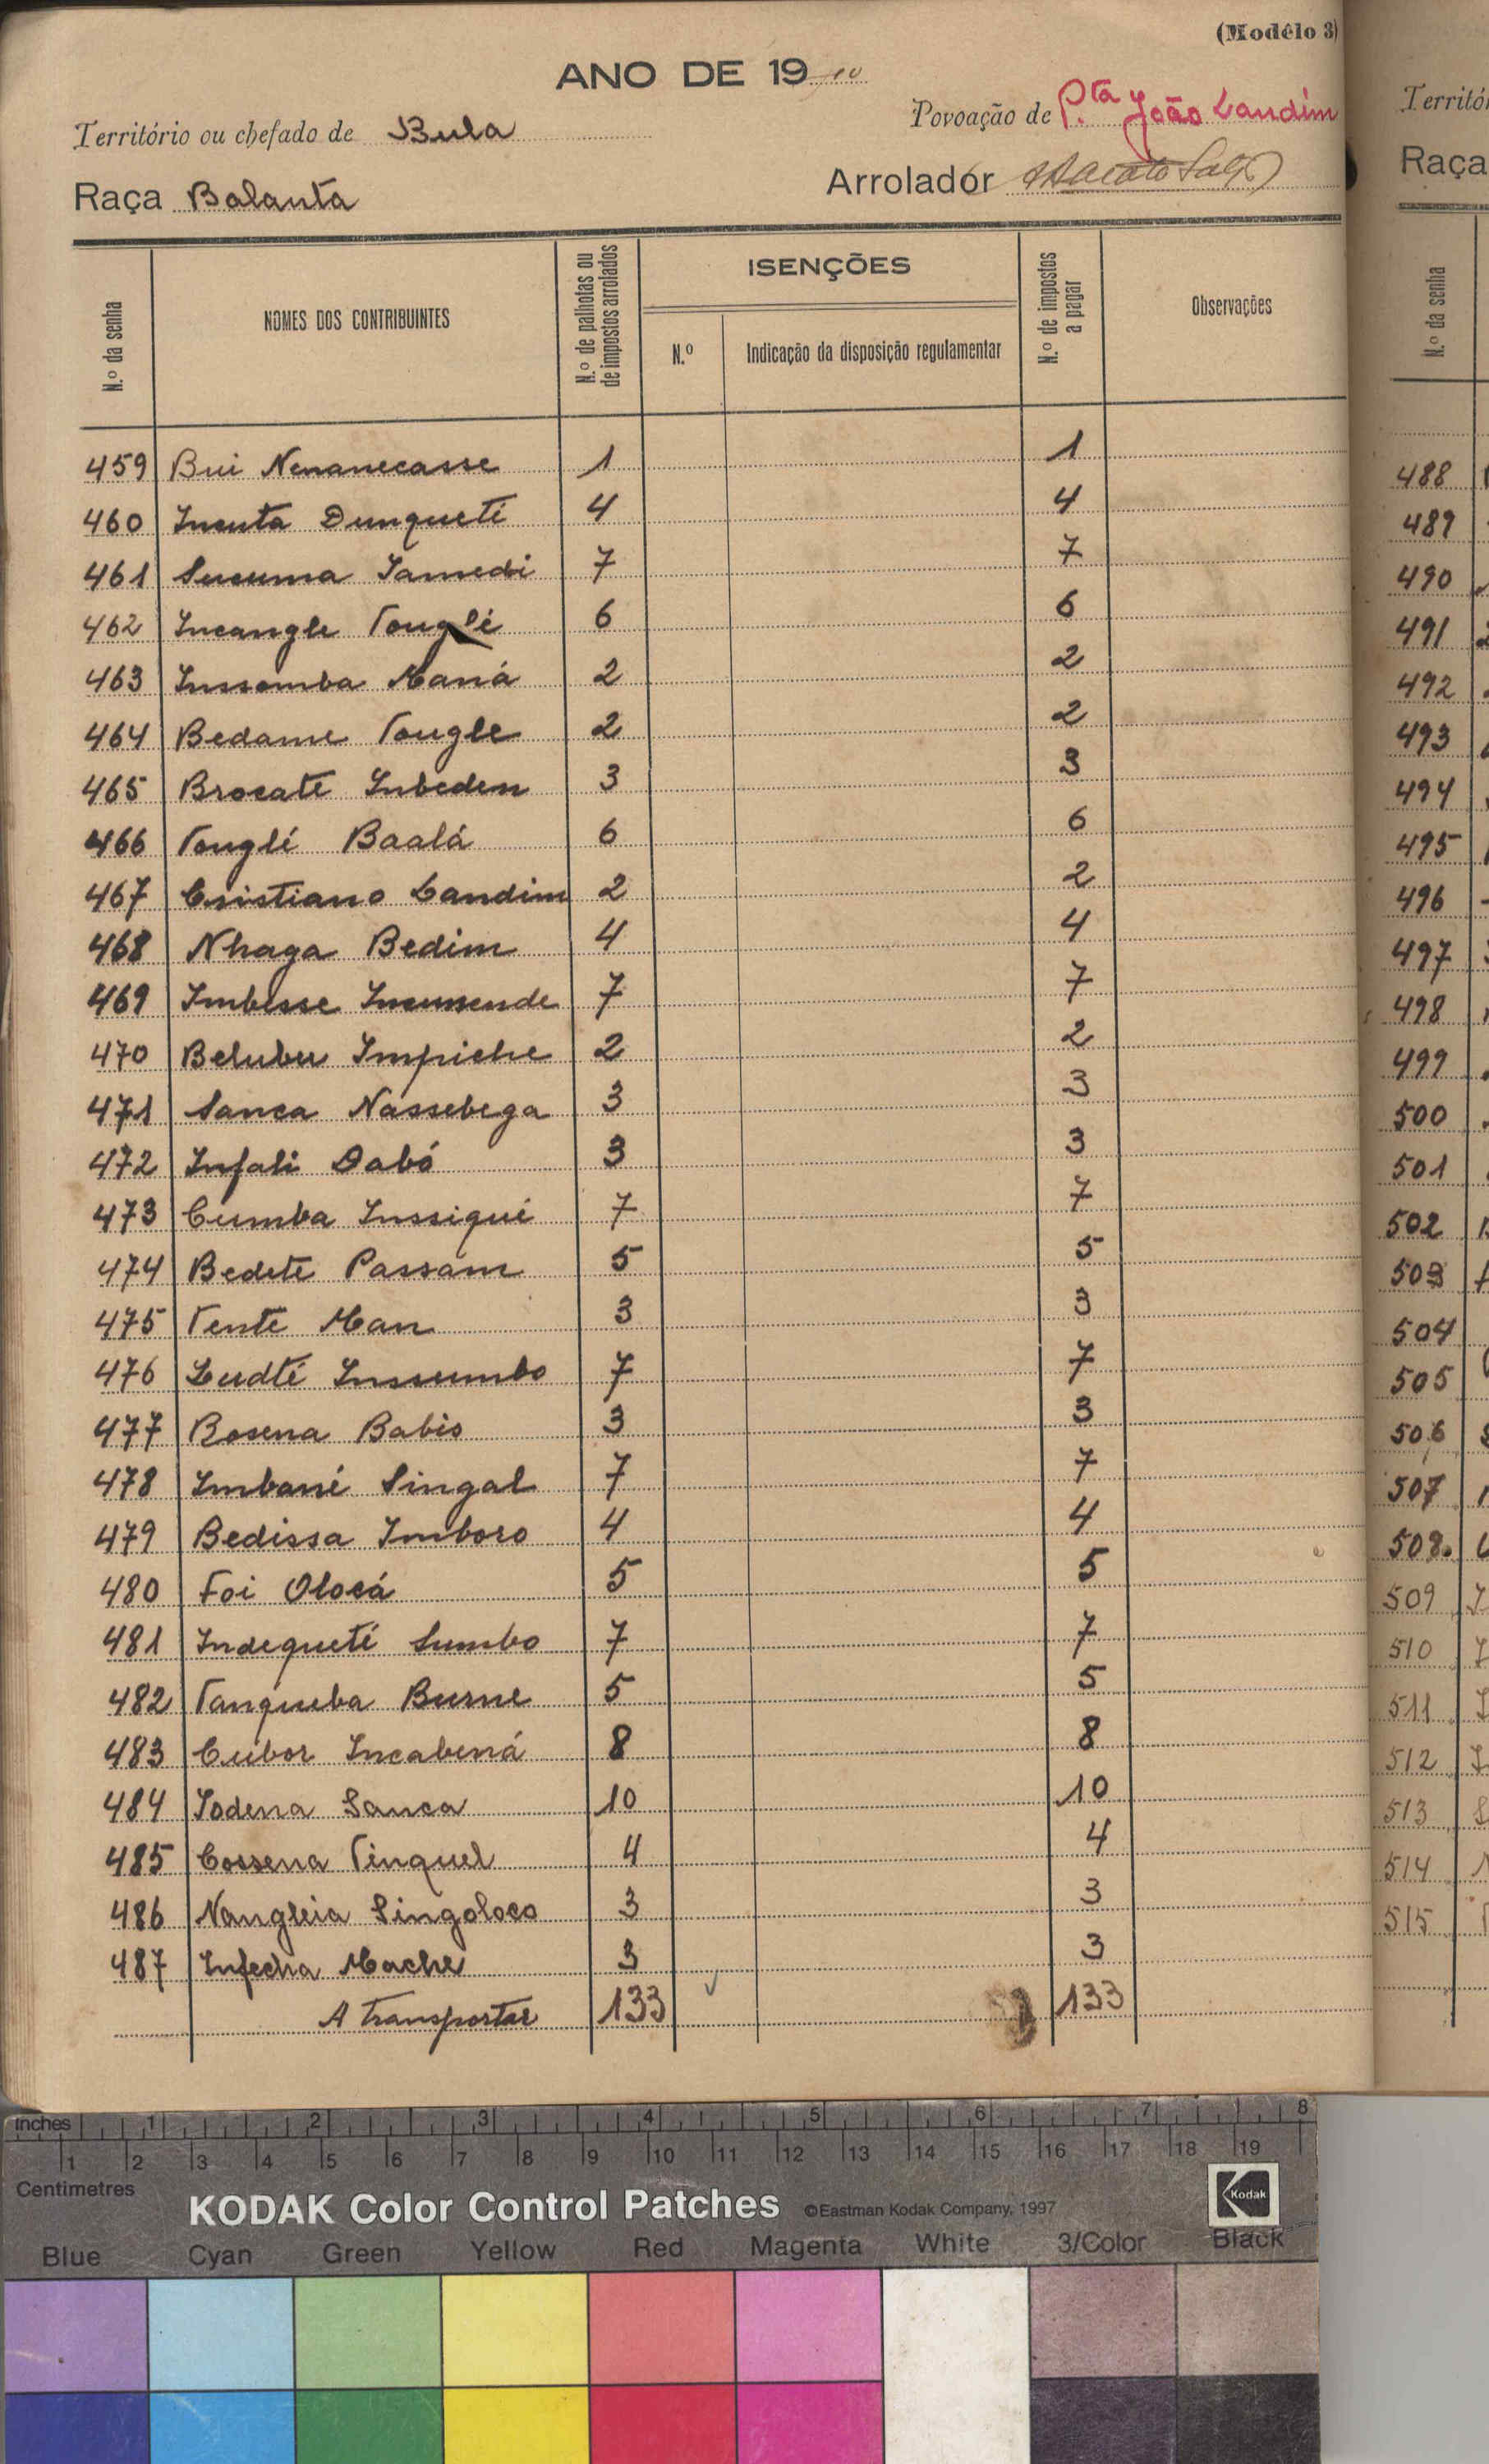 (Modêlo 3)
ANO DE 19
Território ou chefado de Bula
Povoação de P.ta João Landim
Raça Balanta
Arrolador
N.º da senha
NOMES DOS CONTRIBUINTES
N.º de palhotas ou de impostos arrolados
ISENÇÕES
N.º
Indicação da disposição regulamentar
N.º de impostos a pagar
Observações
459 Bui Nenanecasse 1 1
460 Incuta Dunqueté 4 4
461 Sucuma Iamedi 7 7
462 Incangle Tonglé 6 6
463 Inssomba Naná 2 2
464 Bedame Tougle 2 2
465 Brocate Inbeden 3 3
466 Tonglé Baalá 6 6
467 Cristiano Landim 2 2
468 Nhaga Bedim 4 4
469 Imbesse Incumende 7 7
470 Belubu Impiche 2 2
471 Sanca Nassebega 3 3
472 Infali Dabó 3 3
473 Cumba Inssiqué 7 7
474 Bedeté Passam 5 5
475 Tente Man 3 3
476 Ludté Inssumbo 7 7
477 Rosena Babis 3 3
478 Imbané Singal 7 7
479 Bedissa Imboro 4 4
480 Foi Olocá 5 5
481 Indequeté Sumbo 7 7
482 Tanqueba Burne 5 5
483 Cubor Incabená 8 8
484 Iodena Sanca 10 10
485 Cossena Tinquel 4 4
486 Nangleia Singoloco 3 3
487 Infecha Mache 3 3
A transportar 133 133
Territó
Raça
N.º da senha
488
489
490
491
492
493
494
495
496
497
498
499
500
501
502
503
504
505
506
507
508
509
510
511
512
513
514
515
inches 1 2 3 4 5 6 7 8
1 2 3 4 5 6 7 8 9 10 11 12 13 14 15 16 17 18 19
Centimetres
KODAK Color Control Patches ©Eastman Kodak Company, 1997 Kodak
Blue Cyan Green Yellow Red Magenta White 3/Color Black